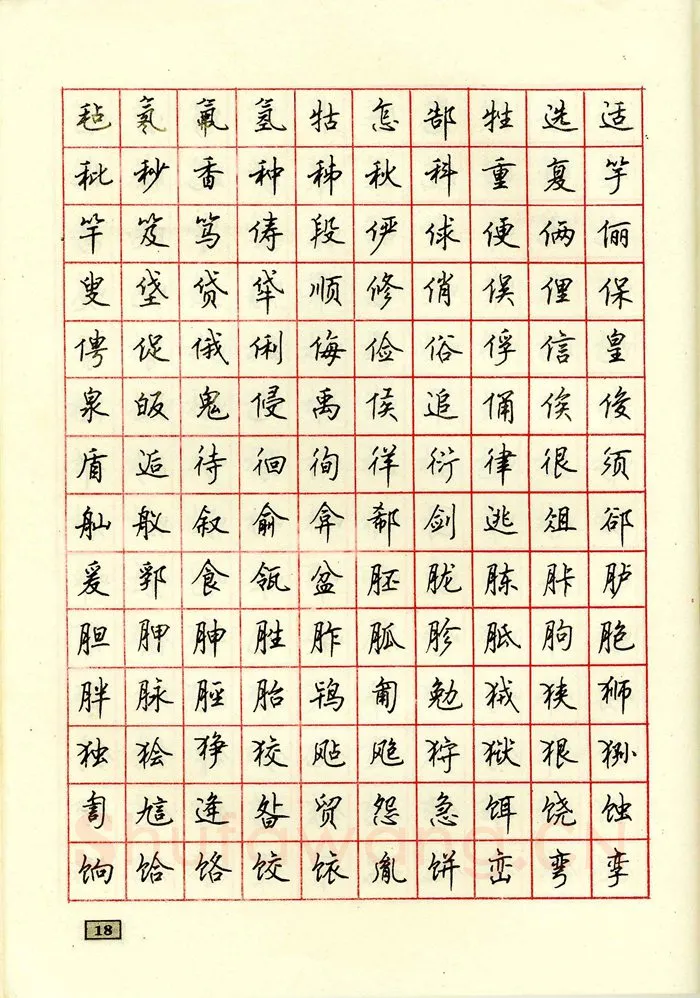 毡氡氟氢牯怎郜牲选适
秕秒香种秭秋科重复竽
竿笈笃俦段俨俅便俩俪
叟垡贷牮顺修俏俣俚保
俜促俄俐侮俭俗俘信皇
泉皈鬼侵禹侯追俑俟俊
盾逅待徊徇徉衍律很须
舢舣叙俞弇郗剑逃俎郤
爰郛食瓴盆胚胧胨胩胪
胆胛胂胜胙胍胗胝朐胞
胖脉胫胎鸨匍勉狨狭狮
独狯狰狡飐飑狩狱狠狲
訇訄逄昝贸怨急饵饶蚀
饷饸饹饺饻胤饼峦弯孪
18